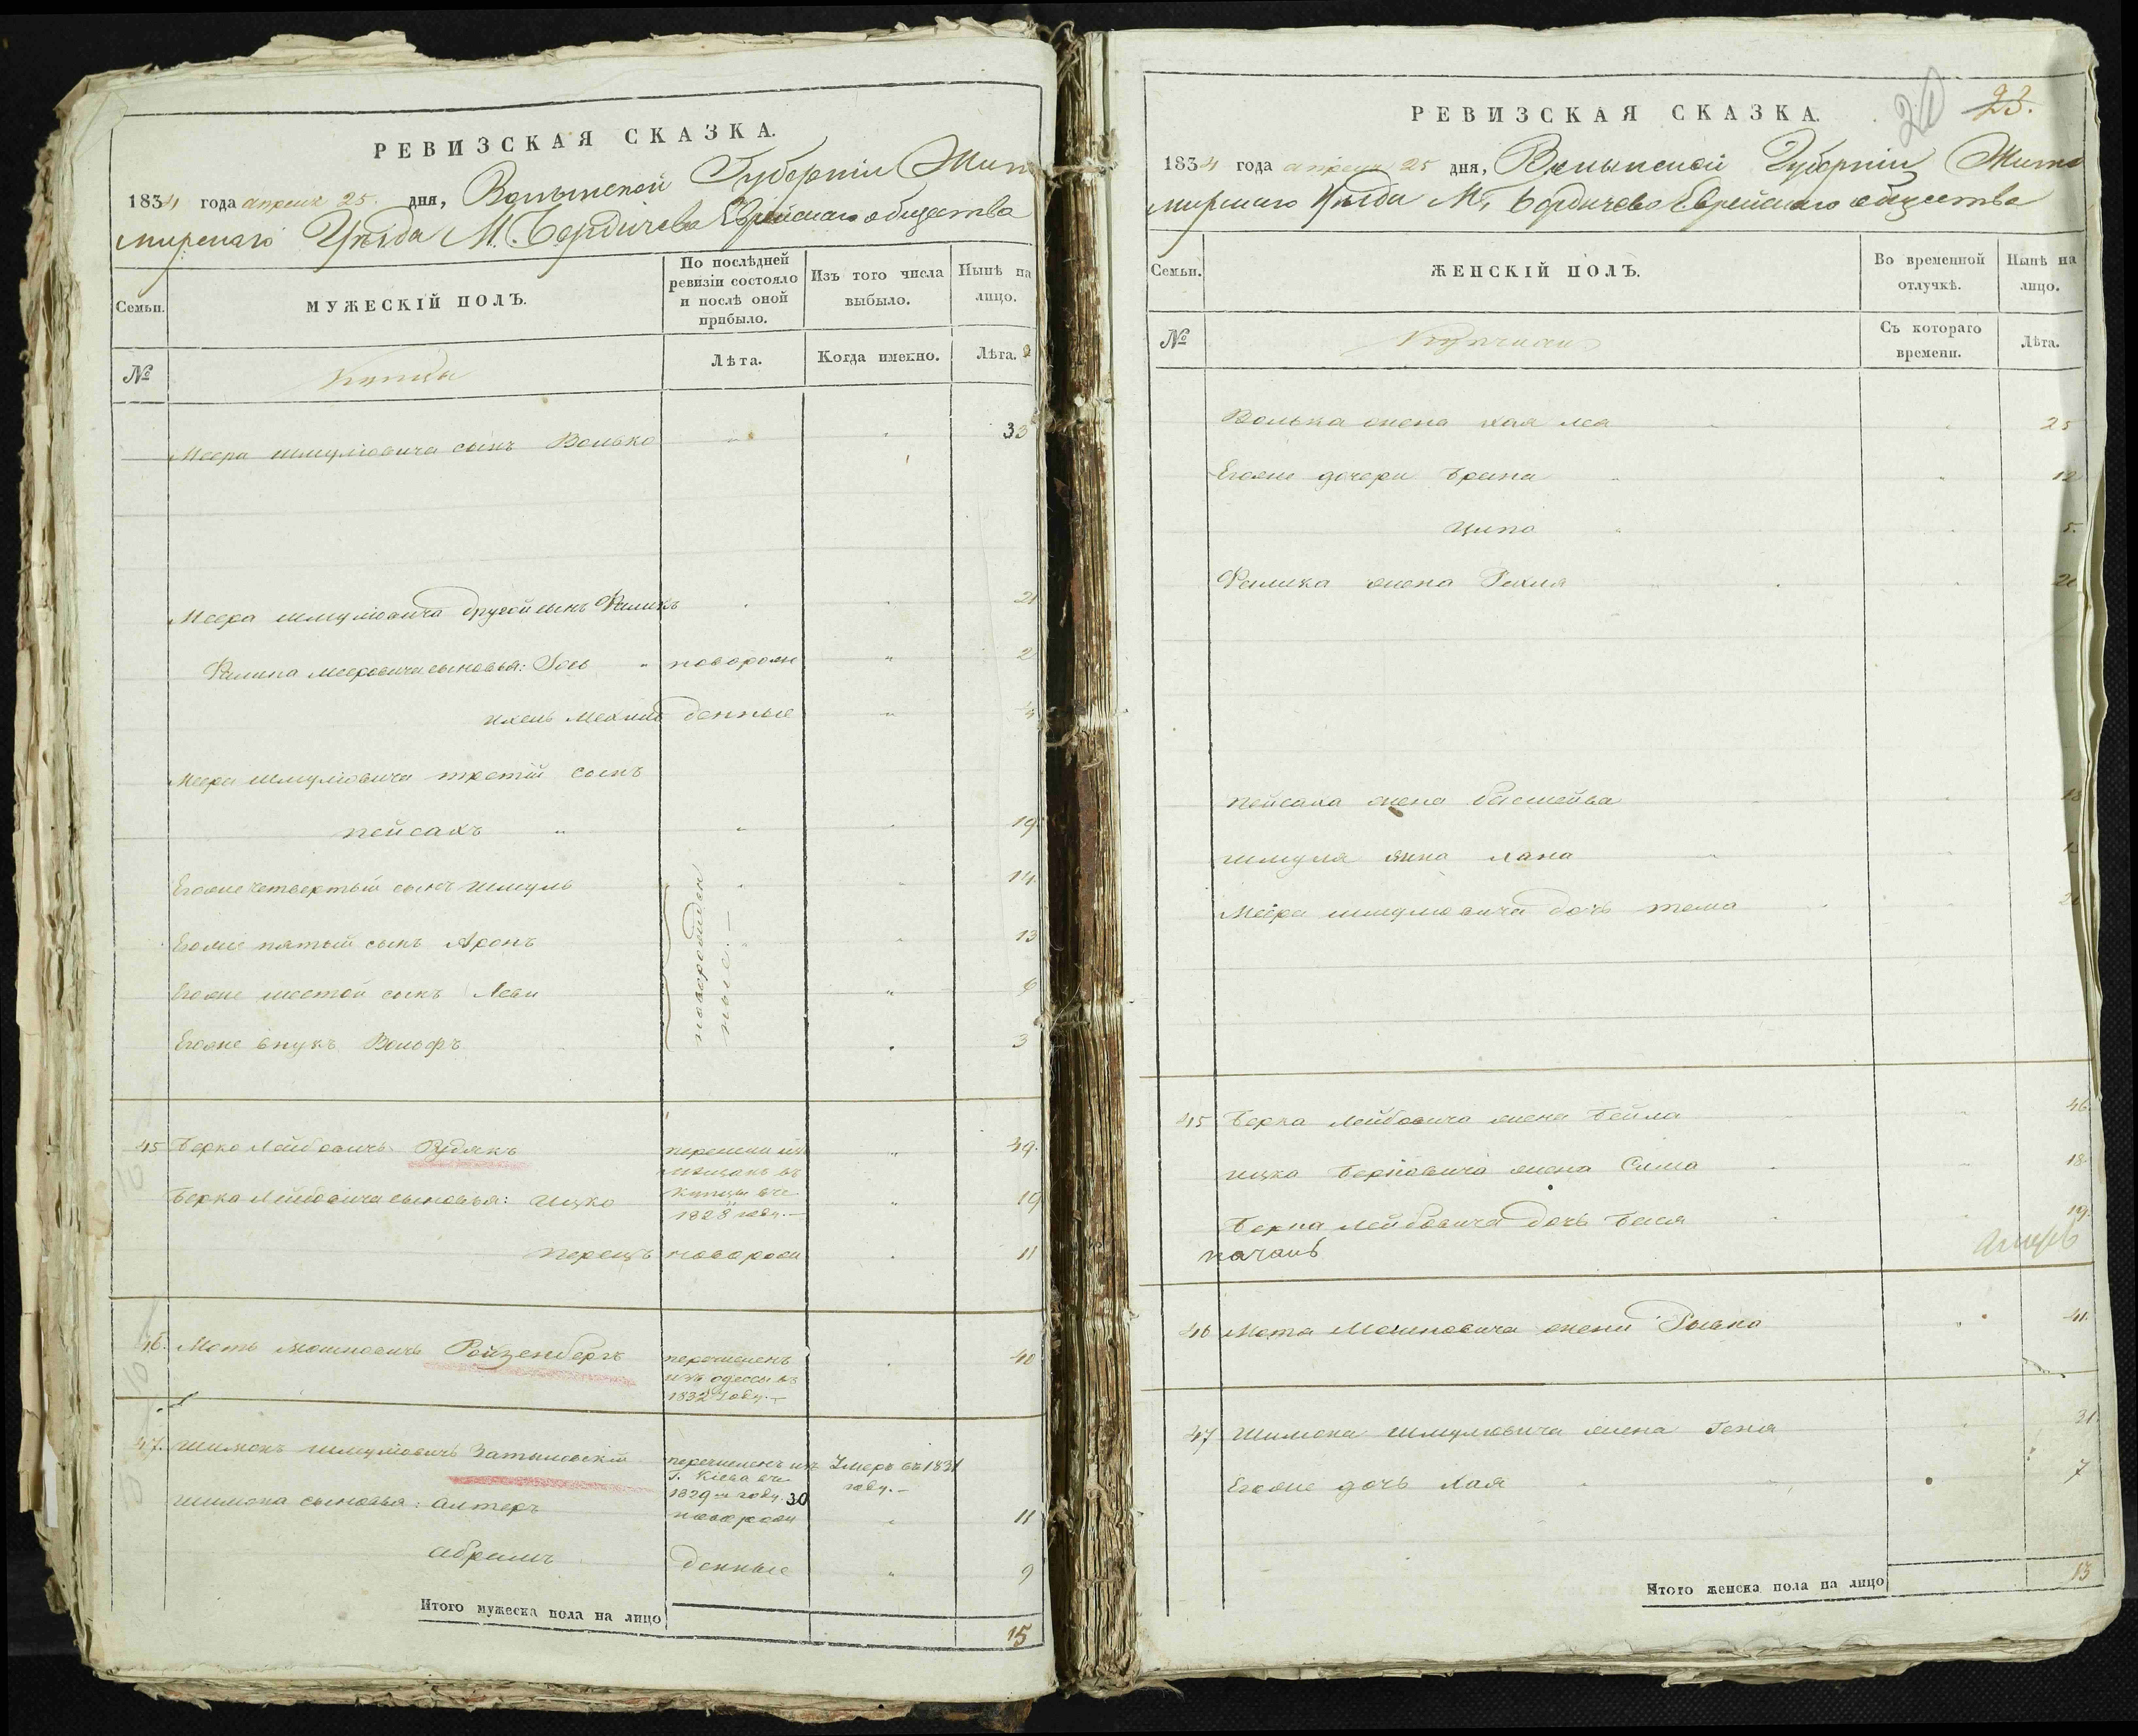 РЕВИЗСКАЯ СКАЗКА.
1834 года апреля 25 дня, Волынской Губерніи Жито
мирскаго Уѣзда М. Бердичева Еврейскаго общества
Семьи.
МУЖЕСКІЙ ПОЛЪ.
По послѣдней
ревизіи состояло
и послѣ оной
прибыло.
Изъ того числа
выбыло.
Нынѣ на
лицо.
№
Купцы
Лѣта.
Когда именно.
Лѣта.
Меера Шмулiовича сынъ Волько 33
Меера Шмулiовича другой сынъ Фаликъ 21
Фалика Мееровича сыновья: Іось новорож 2
Ихель Мехиль денные
Меера Шмулiовича третiй сынъ
Пейсахъ 19
Егоже четвертый сынъ Шмуль 14
Егоже пятый сынъ Аронъ 13
Егоже шестой сынъ Леви 6
Егоже внукъ Вольфъ 3
новорожден
ные.
45 Берко Лейбовичъ Рудякъ 49.
перешли изъ
мещанъ въ
купцы въ
1828 году.
Берка Лейбовича сыновья: Ицко 19
Перецъ новорож 11
46. Моть Мошковичъ Ройзенбергъ 40
перечисленъ
изъ Одессы въ
1832 году.
47. Шимонъ Шмулiовичъ Затыловскiй
перечисленъ изъ
г. Кіева въ
1829м году. 30
Умеръ въ 1831
году.
Шимона сыновья: Алтеръ новорож 11
Абрамъ денные 9
Итого мужеска пола на лицо
15
РЕВИЗСКАЯ СКАЗКА.
20
23.
1834 года апреля 25 дня, Волынской Губерніи Жито
мирскаго Уѣзда М. Бердичева Еврейскаго общества
Семьи.
ЖЕНСКІЙ ПОЛЪ.
Во временной
отлучкѣ.
Нынѣ на
лицо.
№
Купчихи
Съ котораго
времени.
Лѣта.
Волька жена Хая Лея 25
Егоже дочери Брана 12
Ципа 5.
Фалика жена Рихля 20
Пейсаха жена Басшейва 18
Шмуля жена Хана
Меера Шмулiовича дочь Тема
45 Берка Лейбовича жена Бейла 46.
Ицка Берковича жена Сима 18.
Берка Лейбовича дочь Бася 19.
46 Мотя Мошковича жена Рывка 41.
47 Шимона Шмулiовича жена Геня 31.
Егоже дочь Хая 7
Итого женска пола на лицо
13